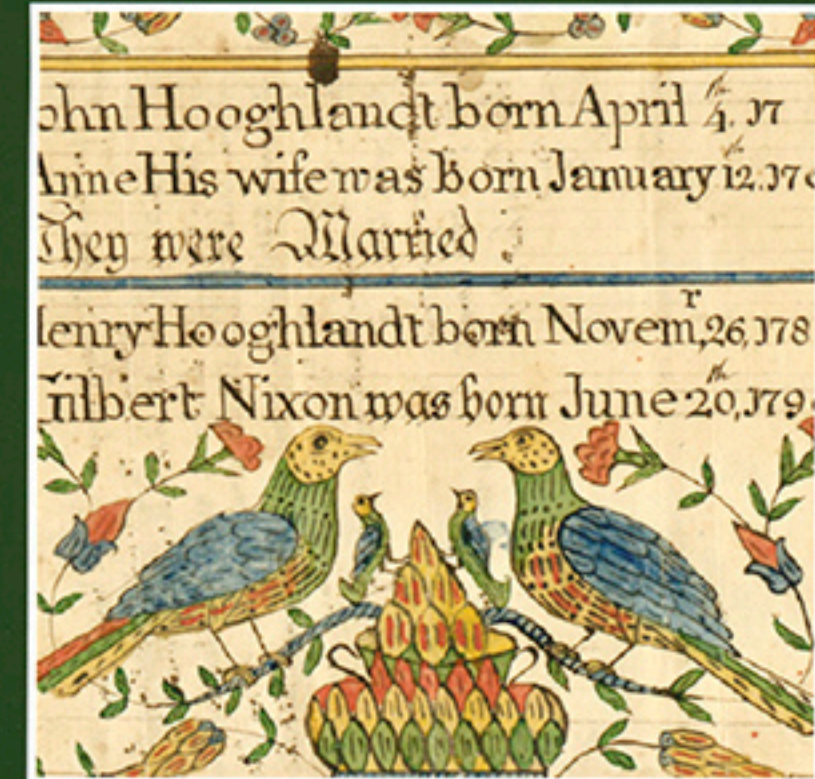 ohn Hooghlandt born April 4.th 17
Anne His wife was born January 12.th 17
They were Married
enry Hooghlandt born Novemr, 26, 178
Gilbert Nixon was born June 20,th 179